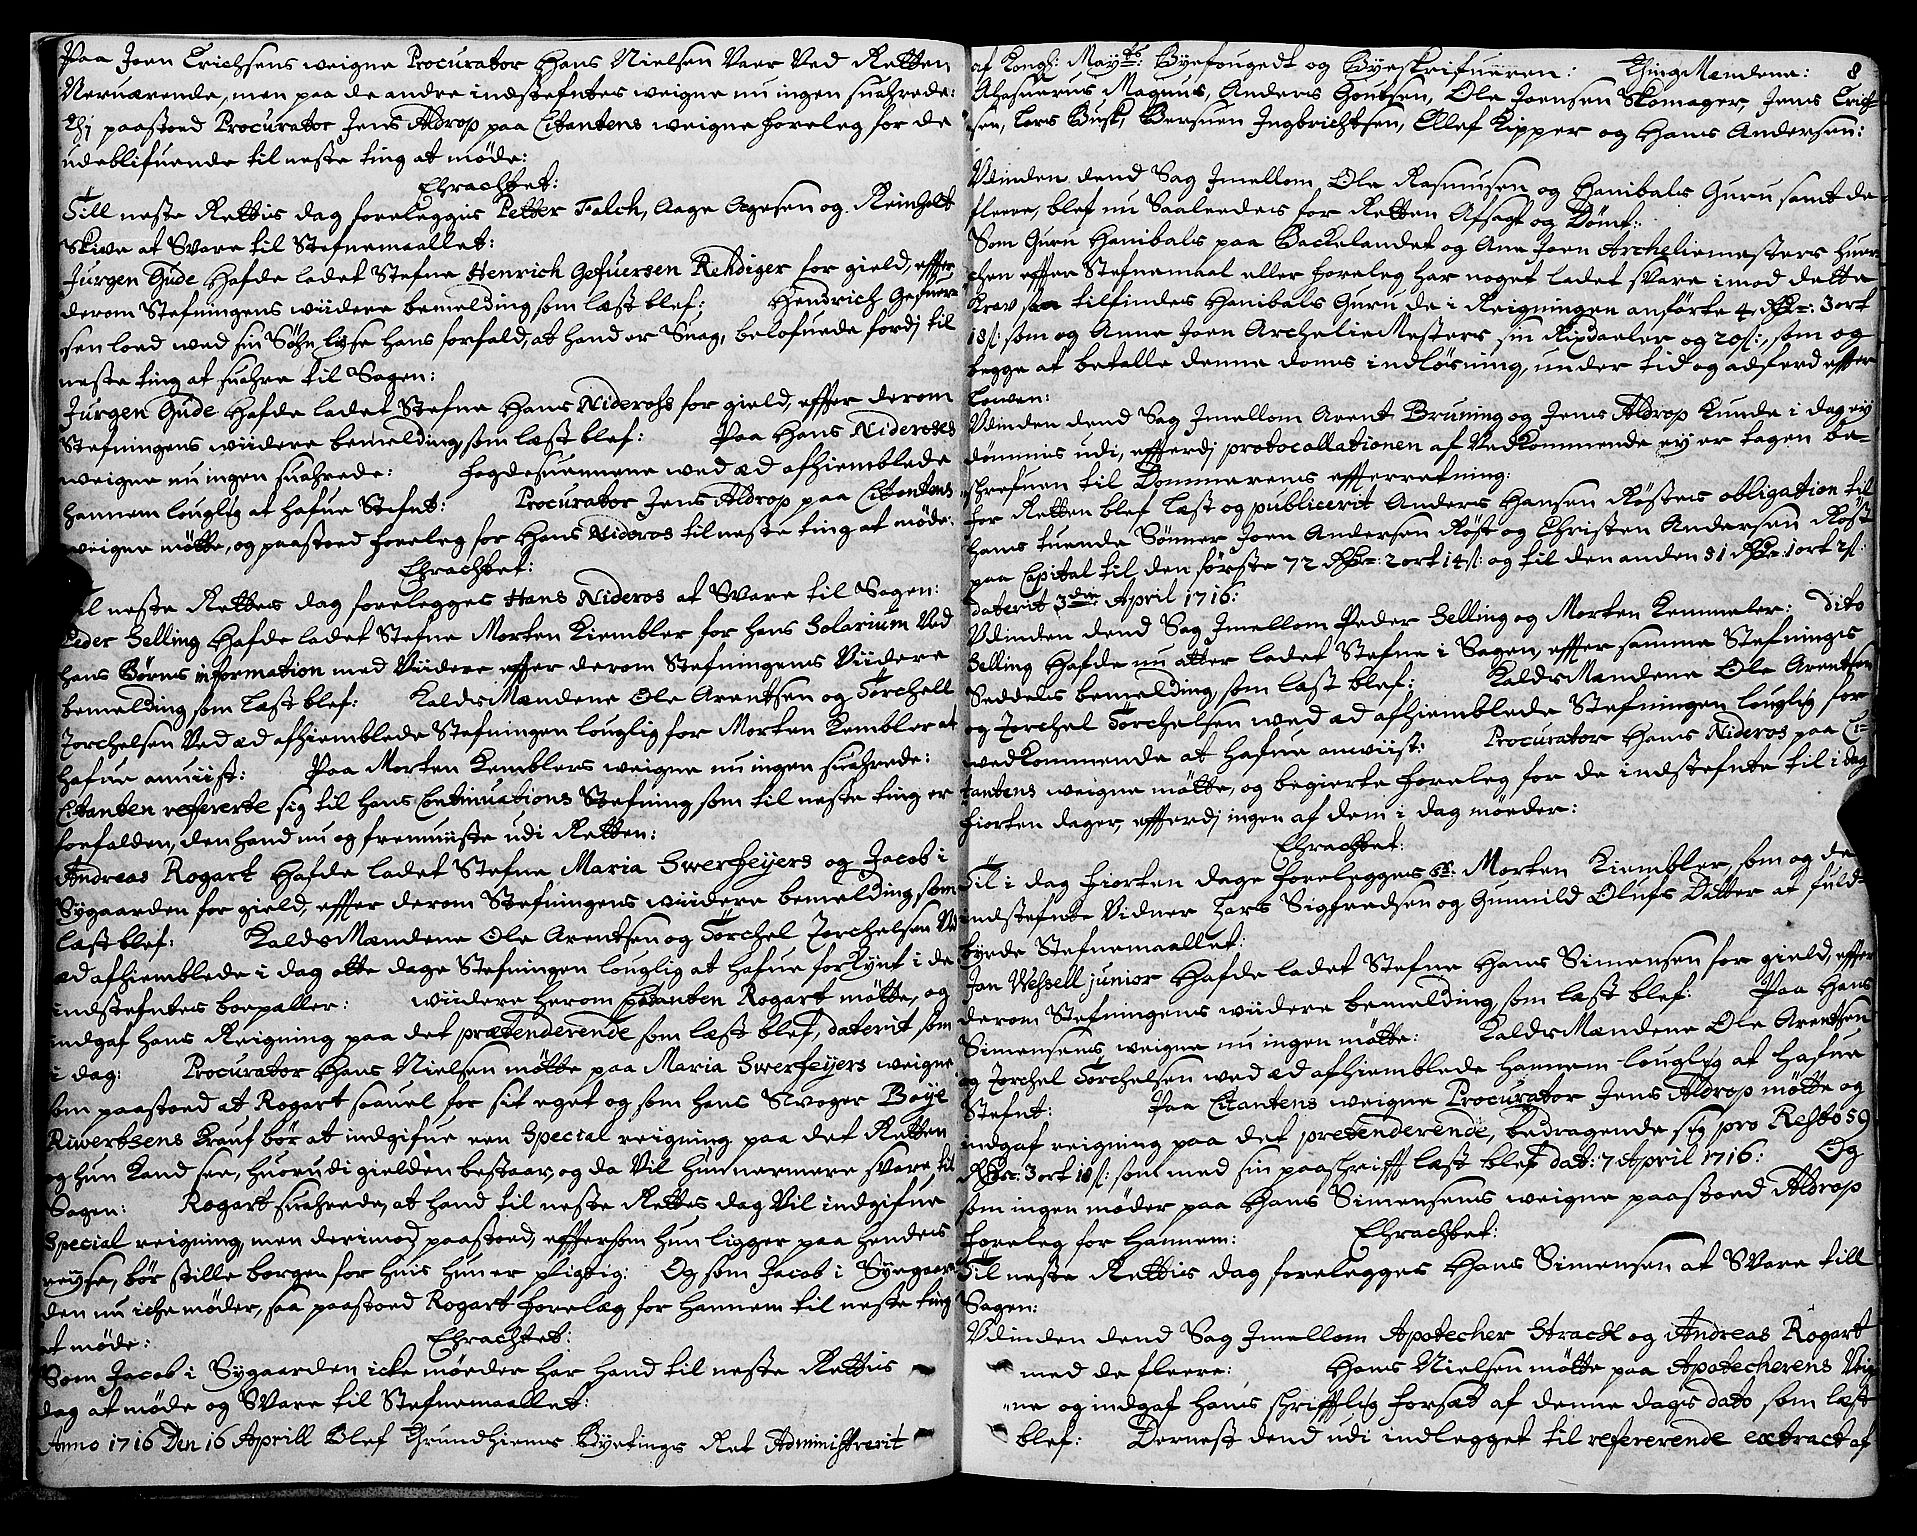 Paa Joen Erichsens weigne Procurator Hans Nielsen Vaer Ved Retten
Neruærende, men paa de andre indstefntes weigne nu ingen suahrede:
Thj paastoed Procurator Jens Aldrop paa Citantens weigne foreleg for de
udeblifuende til neste ting at møde:
Ehrachtet:
Till neste Rettis dag foreleggis Petter Falch, Aage Agesen og Reinholt
Skive at Svare til Stefnemaallet:
Jurgen Gude Hafde ladet Stefne Henrich Gefuersen Rehdiger for gield, effter
derom Stefningens wiidere bemelding som læst blef: Hendrich Gefuer-
sen loed wed sin Søhn liuse hans forfald, at hand er Suag, belofuede fordj til
neste ting at suahre til Sagen:
Jurgen Gude Hafde ladet Stefne Hans Niderohs for gield, effter derom
Stefningens wiidere bemelding som læst blef: Paa Hans Nideroses
weigne nu ingen suahrede: fogdesuennene wed æd afhiemblede
hannem louglig at hafue Stefnt: Procurator Jens Aldrop paa Citantens
weigne møtte, og paastoed foreleg for Hans Nideros til neste ting at møde:
Ehrachtet:
Til neste Rettes dag forelegges Hans Nideros at Svare til Sagen:
Peder Selling Hafde ladet Stefne Morten Kiembler for hans Solarium Ved
hans Børns information med Viidere effter derom Stefningens Viidere
bemelding som læst blef: KaldsMændene Ole Arentsen og Torchell
Torchelsen Ved æd afhiemblede Stefningen louglig for Morten Kembler at
hafue anuiist: Paa Morten Kemblers weigne nu ingen suahrede:
Citanten refererte sig til hans Continuations Stefning som til neste ting er
forfalden, den hand nu og fremuiiste udi Retten:
Andreas Rogart Hafde ladet Stefne Maria Swerfeyers og Jacob i
Sygaarden for gield, effter derom Stefningens wiidere bemelding som
læst blef: KaldsMændene Ole Arentsen og Torchel Torchelsen Ved
æd afhiemblede i dag otte dage Stefningen louglig at hafue forkynt i de
indstefntes boepæller: wiidere herom Citanten Rogart møtte, og
indgaf hans Reigning paa det prætenderende som læst blef, daterit som
i dag: Procurator Hans Nielsen møtte paa Maria Swerfeyers weigne
som paastoed at Rogart saauel for sit eget og som hans Svoger Boye
Riwertsens Krauf bør at indgifue een Special reigning paa det Retten
og hun Kand see, huorudi gielden bestaar, og da Vil hun nermere svare til
Sagen: Rogart suahrede, at hand til neste Rettes dag Vil indgifue
Special reigning, men derimod paastoed, effersom hun ligger paa hendes
reijse, bør stille borgen for huis hun er pligtig: Og som Jacob i Sygaar-
den nu iche møder, saa paastoed Rogart forelæg for hannem til neste ting
at møde:
Ehrachtet:
Som Jacob i Sygaarden icke møeder har hand til neste Rettis
dag at møde og Svare til Stefnemaallet:
Anno 1716 Den 16 Aprill Blef Thrundhiems Byetings Ret Administrerit
af Kongl: Mayts: Byefougedt og Byeskrifueren: ThingMændene: 8
Ahasuerus Magnus, Anders Goutsen, Ole Joensen Skomager, Jens Erich-
sen, Lars Busk, Bersuen Ingbrichtsen, Ollef Kipper og Hans Andersen:
Udinden dend Sag Imellom Ole Rasmusen og Hanibals Guru samt de
fleere, blef nu Saaleedes for Retten Afsagt og Dømt:
Som Guru Hanibals paa Backelandet og Ane Joen Archeliemesters huer-
chen effter Stefnemaal eller foreleg har noget ladet svare imod dette
Krav saa tilfindes Hanibals Guru de i Reigningen anførte 4 Rdr: 3 ort
18 s: som og Anne Joen ArchelieMesters sin Rixdaeler og 20 s:, som og
begge at betalle denne doms indløsning, under tid og adferd effter
Lowen:
Udinden dend Sag Imellom Arent Bruning og Jens Aldrop Kunde i dag ej
dømmes udi, effterdj protocollationen af Vedkommende ey er tagen be-
schrefuen til Dommerens effterretning:
For Retten blef læst og publicerit Anders Hansen Røstes obligation til
hans tuende Sønner Joen Andersen Røst og Christen Andersen Røst
paa Capital til den første 72 Rdr: 2 ort 14 s: og til den anden 51 Rdr: 1 ort 2 s:
daterit 3den April 1716:
Udinden dend Sag Imellom Peder Selling og Morten Kemmeler: Dito
Selling Hafde nu atter ladet Stefne i Sagen, effter samme Stefnings
Seddels bemelding, som læst blef: KaldsMændene Ole Arentsen
og Torchel Torchelsen wed æd afhiemblede Stefningen louglig for
wedkommende at hafue anwiist: Procurator Hans Nideros paa Ci-
tantens weigne møtte, og begierte foreleg for de indstefnte til i dag
fiorten dager, effterdj ingen af dem i dag møeder:
Ehrachtet:
Til i dag fiorten dage forelegges Sr: Morten Kiembler, som og de
indstefnte Vidner Lars Sigfredsen og Gunnild Olufs Datter at fuld-
byrde Stefnemaallet:
Jan Wessell junior Hafde ladet Stefne Hans Simensen for gield, effter
derom Stefningens wiidere bemelding, som læst blef: Paa Hans
Simensens weigne nu ingen møtte: KaldsMændene Ole Arentsen
og Torchel Torchelsen wed æd afhiemblede hannem louglig at hafue
Stefnt: Paa Citantens weigne Procurator Jens Aldrop møtte og
indgaf reigning paa det prætenderende, bedragende sig pro Resto 59
Rdr: 3 ort 18 s: som med sin paaschrifft læst blef dat: 7 April 1716: Og
som ingen møder paa Hans Simensens weigne paastoed Aldrop
foreleg for hannem: Ehrachtet:
Til neste Rettis dag forelegges Hans Simensen at Svare till
Sagen:
Udinden dend Sag Imellom Apotecher Strackl og Andreas Rogart
med de fleere: Hans Nielsen møtte paa Apotecherens Veig-
ne og indgaf hans schrifftlig forsæt af denne dags dato som læst
blef: Dernest dend udi indlegget til refererende extract af